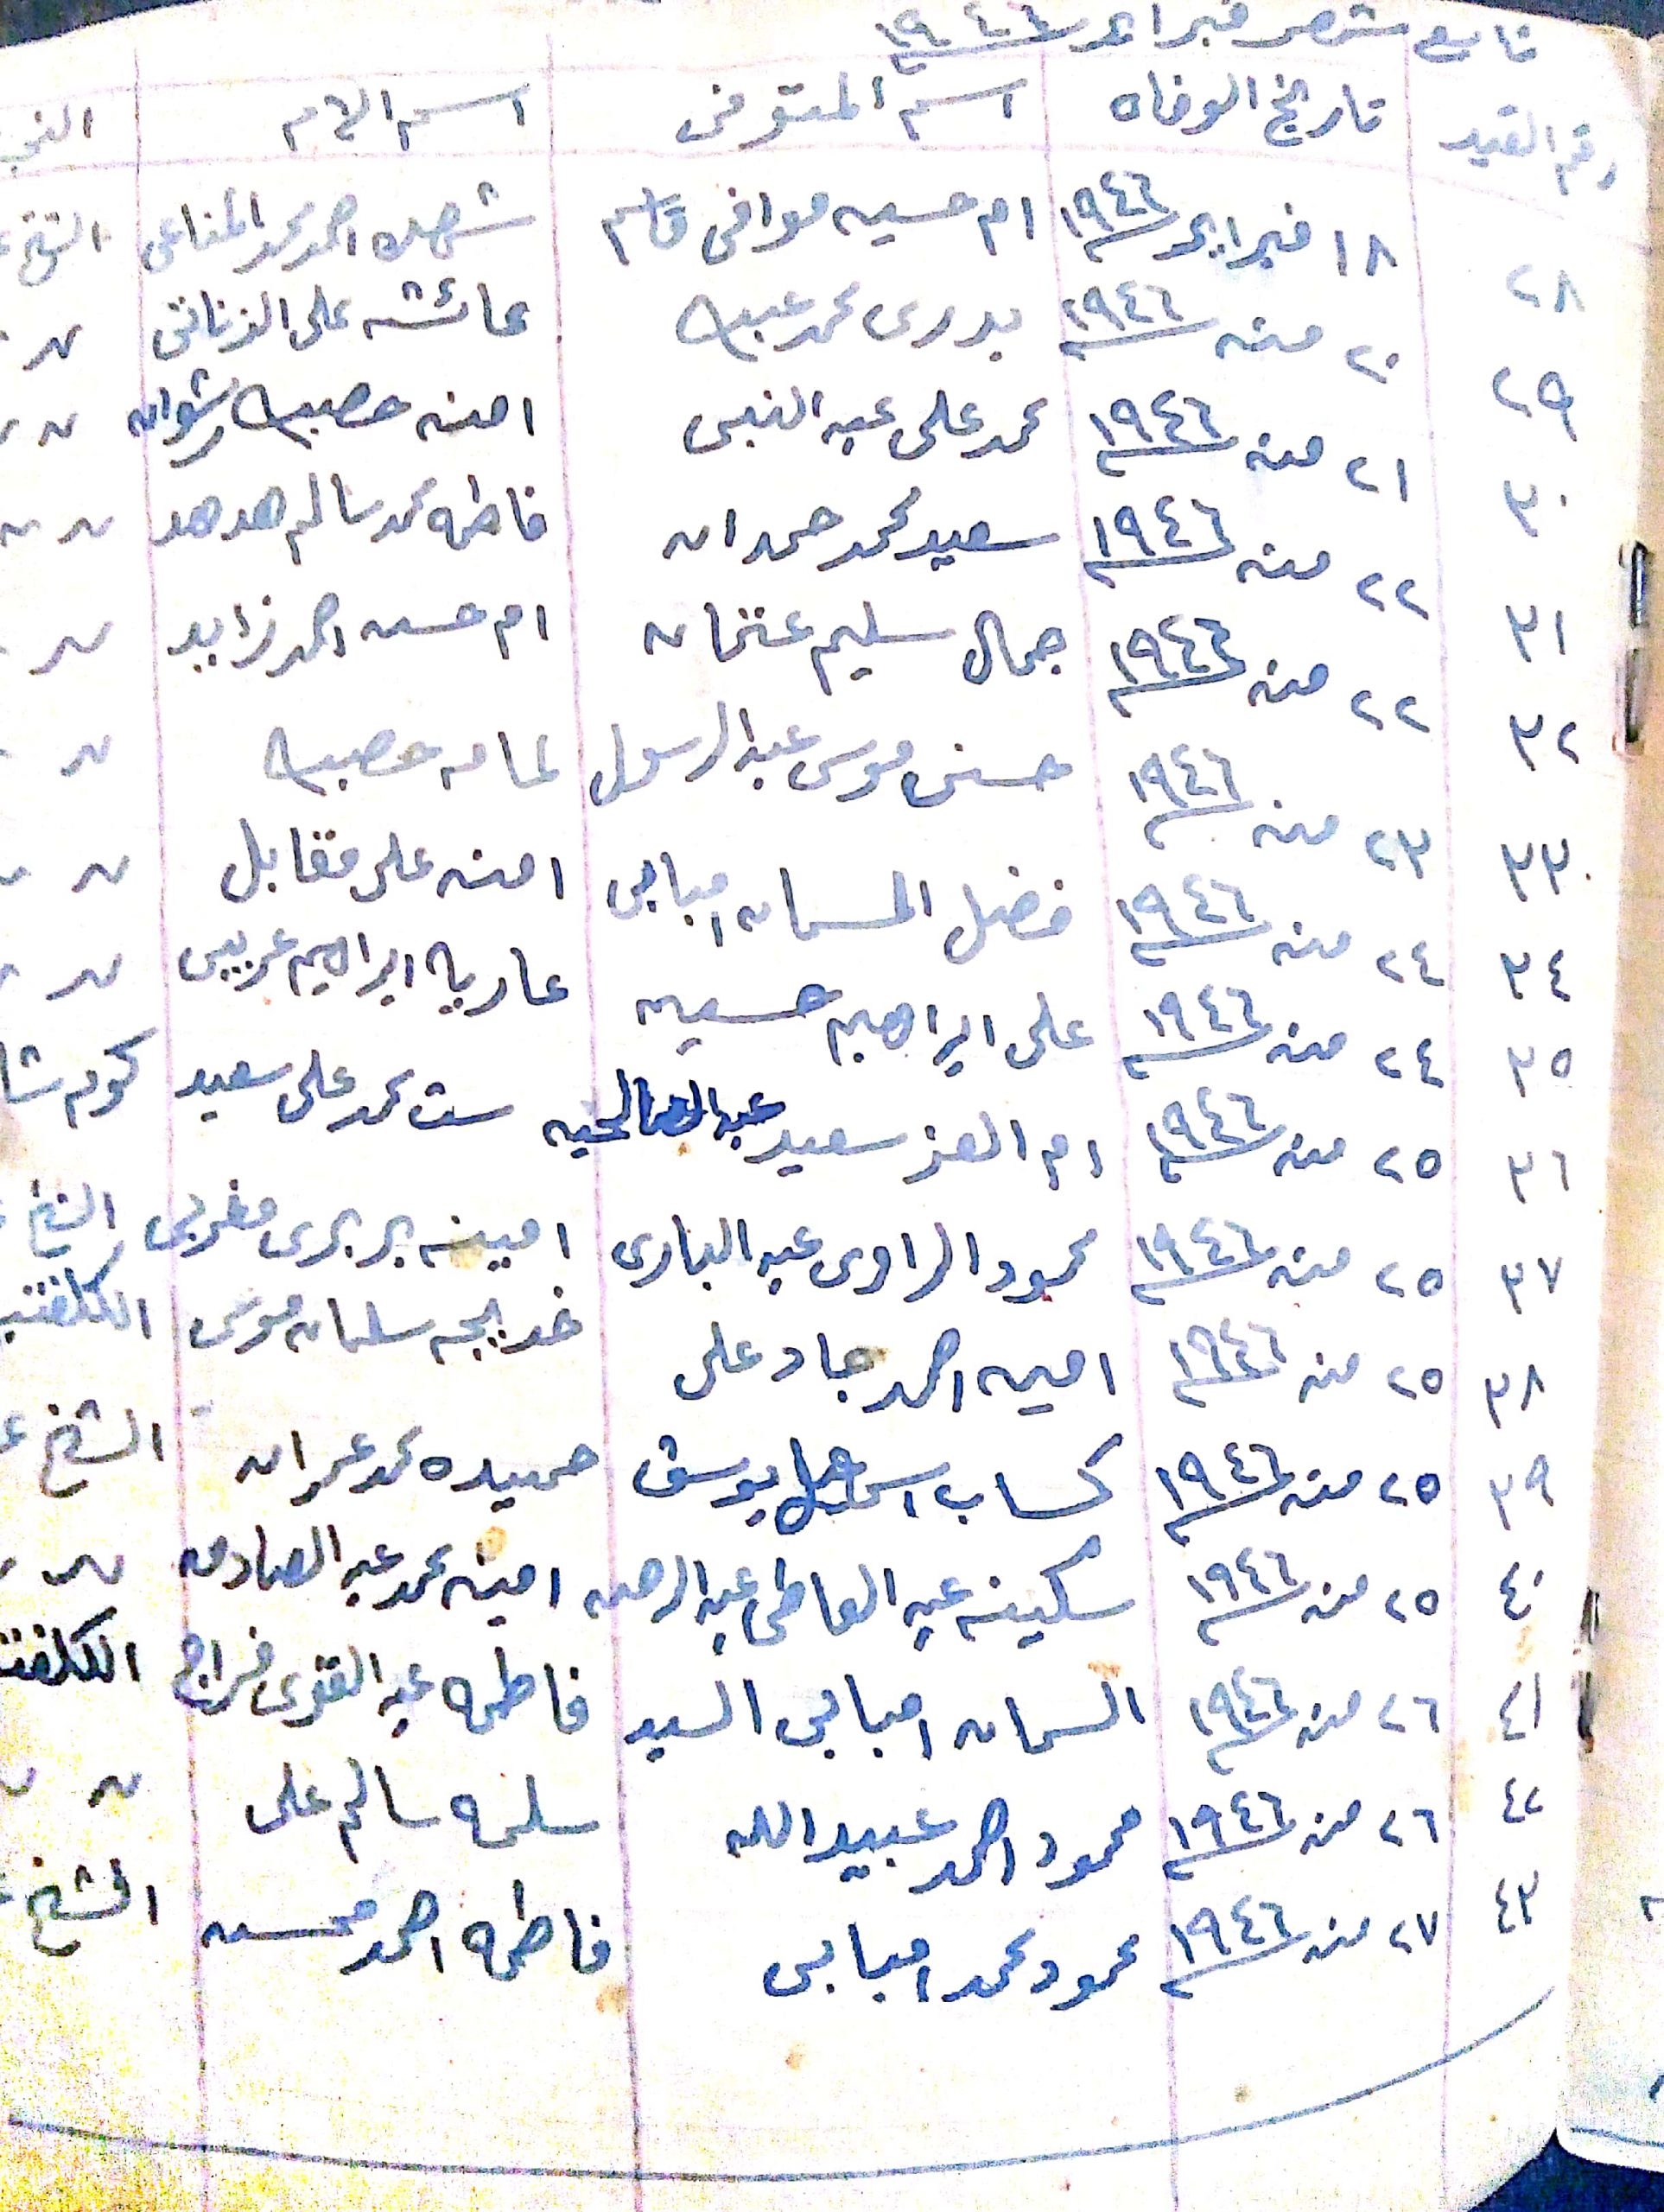 تابع شهر فبراير ١٩٤٦
رقم القيد تاريخ الوفاه اسم المتوفى اسم الام
٢٨ ١٨ فبراير ١٩٤٦ ام حسين موافى قاسم احمد محمد الشيخ
٢٩ ٢٠ منه ١٩٤٦ بدرى محمد عائشه على الزناتى 〃
٣٠ ٢١ منه ١٩٤٦ محمد على عبد النبى امنه رشوان 〃 〃
٣١ ٢٢ منه ١٩٤٦ سعيد محمد حمدان فاطمه محمد سالم هدهد 〃 〃
٣٢ ٢٢ منه ١٩٤٦ جمال سليم عثمان ام حسن احمد زايد 〃
٣٣ ٢٣ منه ١٩٤٦ حسنى موسى عبد الرسول 〃
٣٤ ٢٤ منه ١٩٤٦ فضل السمان امبابى امنه على مقابل 〃 〃
٣٥ ٢٤ منه ١٩٤٦ على ابراهيم حسين ابراهيم عريبى 〃 〃
٣٦ ٢٥ منه ١٩٤٦ ام العز سعيد عبد الصالحين ست محمد على سعيد كوم
٣٧ ٢٥ منه ١٩٤٦ محمود الراوى عبد البارى امينه بربرى مغربى الشيخ
٣٨ ٢٥ منه ١٩٤٦ امين احمد جاد على خديجه سلمان موسى
٣٩ ٢٥ منه ١٩٤٦ كساب اسماعيل يوسف حميده محمد عمران الشيخ
٤٠ ٢٥ منه ١٩٤٦ سكينه عبد العاطى عبد الرحمن امينه محمد عبد الصادق 〃 〃
٤١ ٢٦ منه ١٩٤٦ السمان امبابى السيد فاطمه عبد القوى فراج
٤٢ ٢٦ منه ١٩٤٦ محمود احمد عبيد الله سلمه سالم على 〃 〃
٤٣ ٢٧ منه ١٩٤٦ محمود محمد امبابى فاطمه احمد محسن الشيخ